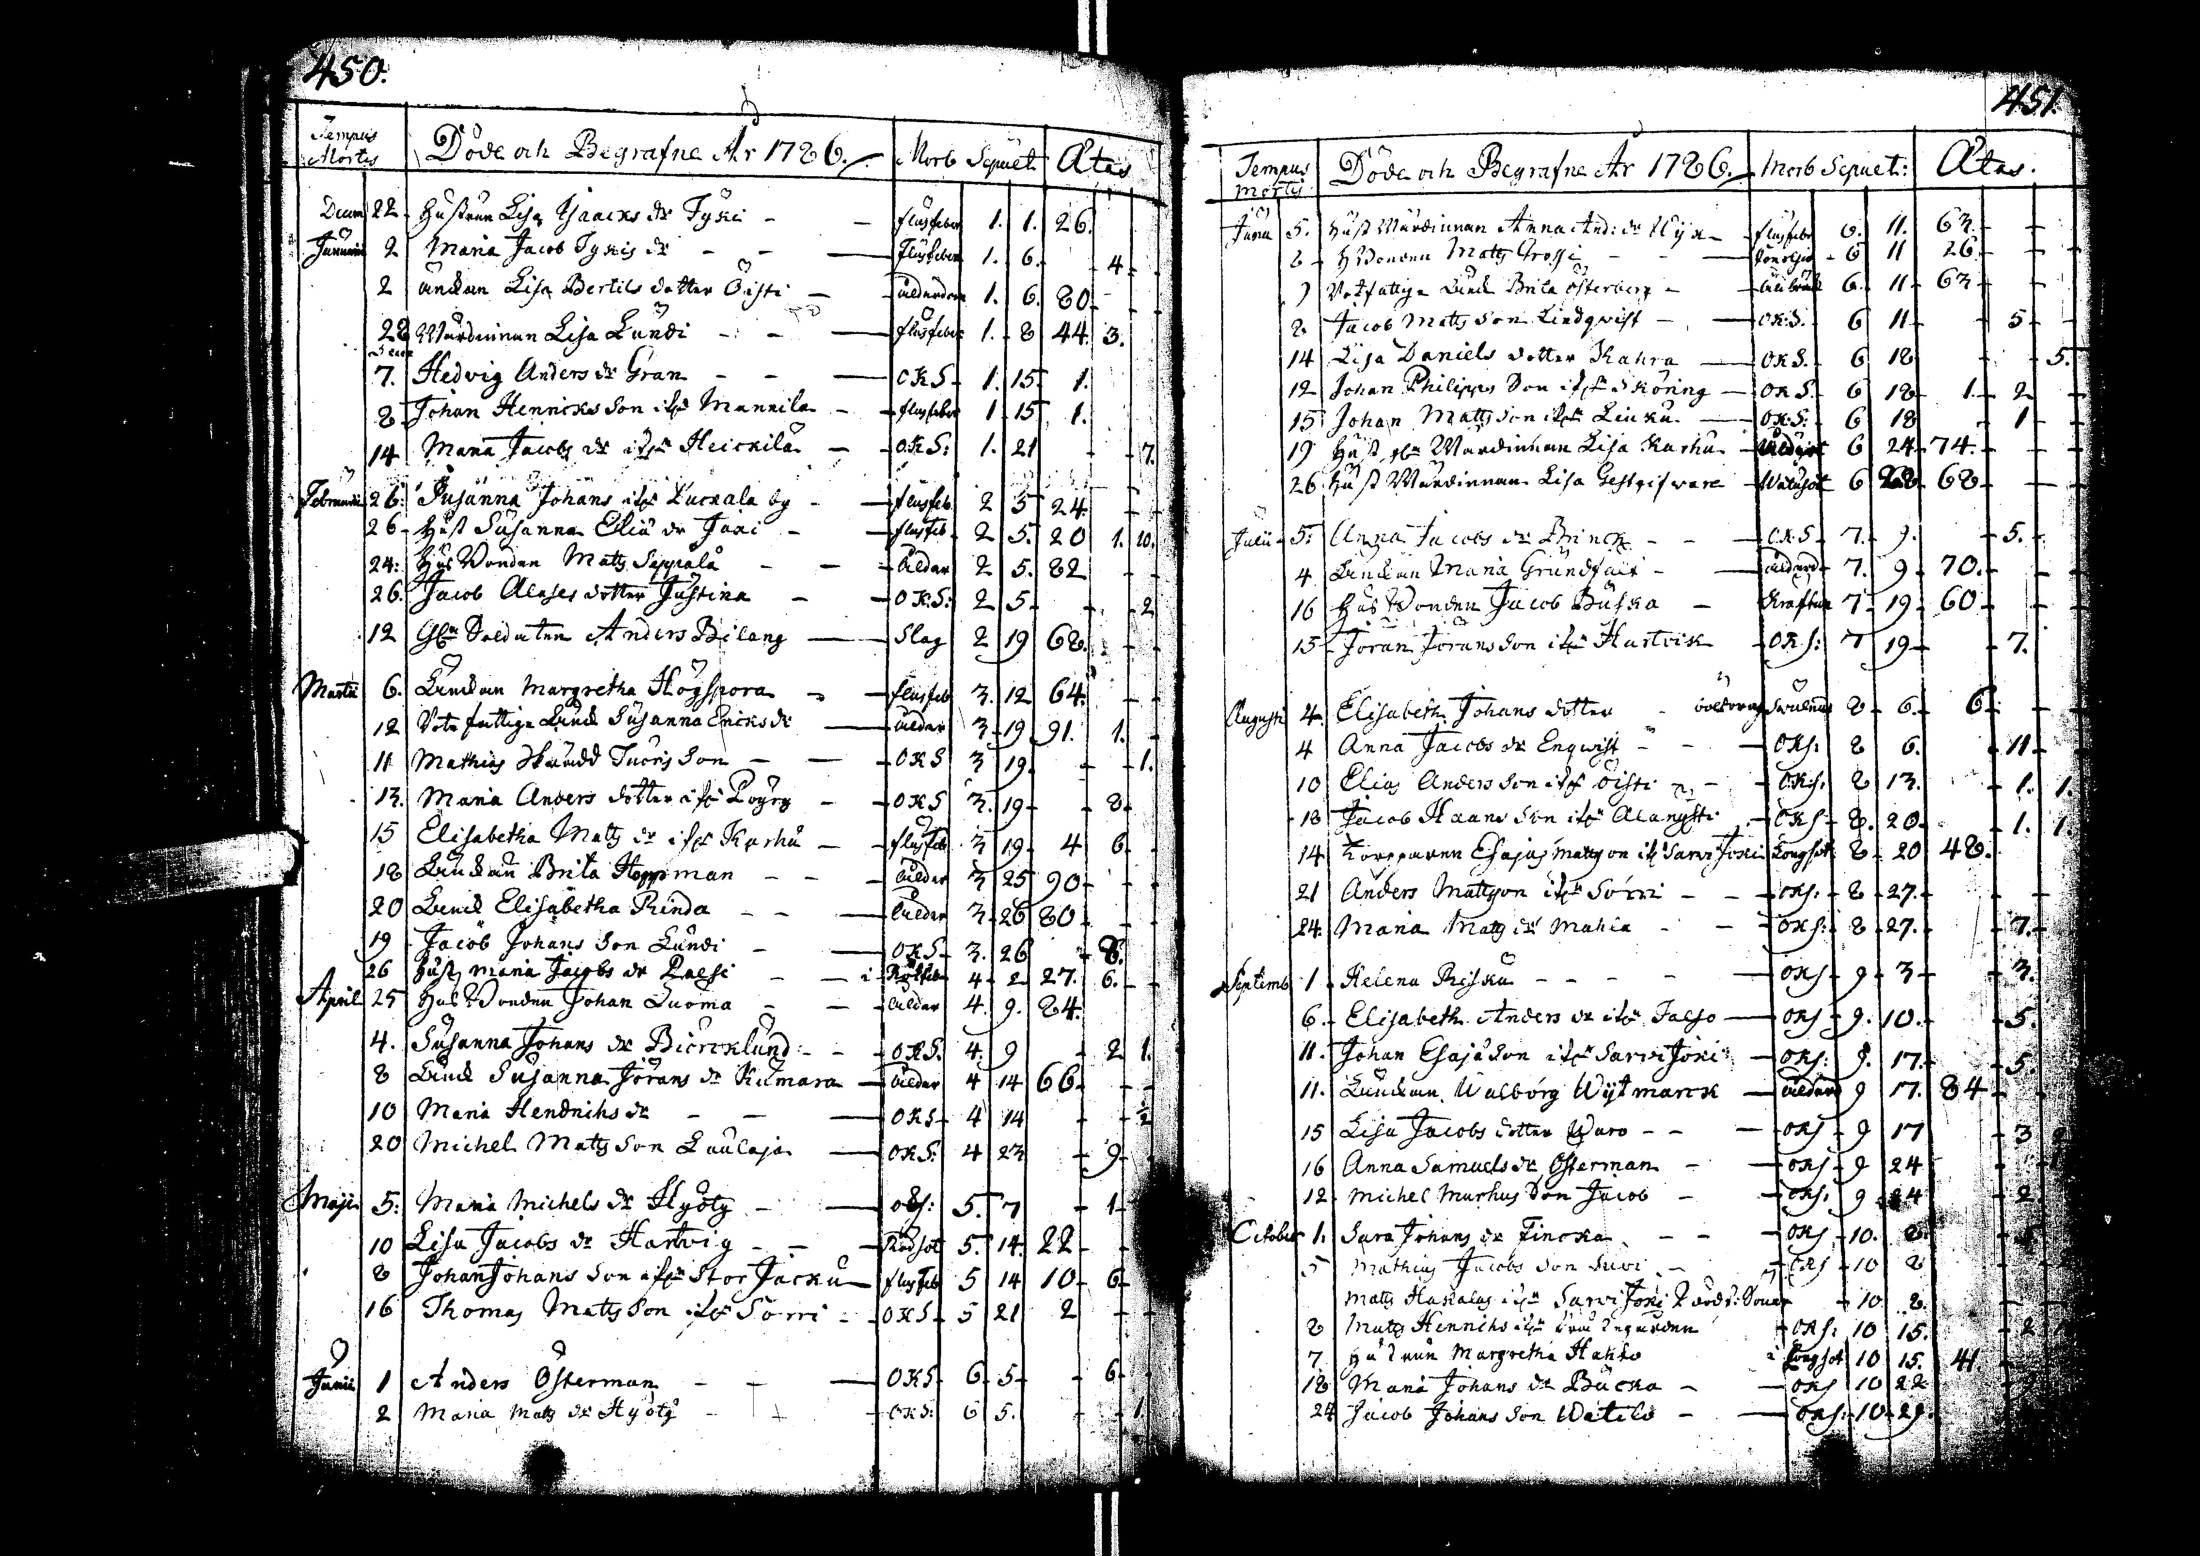 450.
Tempus Mortis Döde och Begrafne År 1786. Morb Sepuet Ætas
Decem 22 Hustrun Lisa Isaacks dr Tyski - - flusfeber 1. 1. 26.
Januarii 2 Maria Jacob Tyskis dr - - - flusfeber 1. 6. - 4 -
2 änckan Lisa Bertils dotter Öisti - ålderdom 1. 6. 80 -
28 Wärdinnan Lisa Lundi - - - flusfeber 1. 8 44. 3.
7. Hedvig Anders dr Gran - - - OKS - 1. 15. 1.
8 Johan Henricks son ifrån Mannila - - flusfeber 1 15 1.
14 Maria Jacobs dr ifrån Heickilä - - OKS: 1. 21 - - 7.
Februarii 26: Susanna Johans ifr Luckala by - - flusfeb. 2 5 24. - -
26 - Hust Susanna Eliæ dr Jaxi - - flusfeb - 2 5. 20 1. 10.
24: Hus Bonden Matts Seppälä - - - ålder 2 5. 82 - -
26. Jacob Alases dotter Justina - - OKS: 2 5 - - - 2
12 Gln Soldaten Anders Bilang - Slag 2 19 68. - -
Martii 6. Änckan Margretha Högspora - - flusfeb 3. 12 64. - -
12 Vote fattige Änck Susanna Ericks dr - ålder 3 - 19 - 91. 1. -
11 Mathias Tuoris Son - - - OKS 3 19. - - 1.
13. Maria Anders dotter ifr Pöyry - - OKS 3. 19 - - 8 -
15 Elisabetha Matts dr ifrån Karhu - - flusfeb 3 19 - 4 6 -
18 Änckan Brita Hoppman - - - ålder 3 25 90 - - -
20 Änck Elisabetha Rinda - - - ålder 3 - 26 80 - - -
19 Jacob Johans Son Lundi - - OKS - 3. 26 - 8.
26 Hust Maria Jacobs dr Palsi - - Rötfeber 4 - 2 27. 6. - -
April 25 Hus Bonden Johan Luoma - - ålder 4. 9. 84.
4. Susanna Johans dr Biörcklund - - OKS. 4. 9 - 2 1.
8 Änck Susanna Jörans dr Kumara - ålder 4 14 66 - - -
10 Maria Hendrichs dr - - - OKS - 4 14 - - 1/2
20 Michel Matts Son Laulaja - OKS: 4 23 - 9 -
Maji 5: Maria Michels dr Hyöty - - OKS: 5. 7 - 1 -
10 Lisa Jacobs dr Hartvig - - - Rödsot 5. 14. 22 - -
8 Johan Johans Son ifrån Stor Jacku - flusfeb 5 14 10 - 6 -
16 Thomas Matts Son ifr Sorri - - OKS - 5 21 2 - -
Junii 1 Anders Österman - - - OKS - 6 - 5 - - 6 -
2 Maria Matts dr Hyöty - - OKS: 6 5. - - 1.
451.
Tempus mortis Döde och Begrafne År 1786. Morb Sepuet: Ætas.
Junii 5. Hust Wärdinnan Anna And: dr - flusfebr 6. 11. 63. - -
8 - H Bonden Matts Grossi - - - 6 11 26 - - -
9 Votefattige Änck Brita Österberg - 6 - 11 - 63 - - -
8 Jacob Matts Son Lindqvist - - OKS. - 6 11 - - 5 -
14 Lisa Daniels dotter Kahra - OKS. - 6 18 - - 5.
12 Johan Philippus Son ifrån Sköning - OKS. - 6 18 - 1. - 2 -
15 Johan Matts Son ifrån Linku - OKS: - 6 18 - 1 -
19 Hust gla Wärdinnan Lisa Karhu - 6 24 - 74. - - -
26 Hust Wärdinnan Lisa Gestgifvare - Watusot 6 28 - 68 - - -
Julii - 5: Anna Jacobs dr Brinck - - - OKS - 7. - 9. - 5. -
4 Änckan Maria Grundfält - - ålderd - 7. 9 - 70. - - -
16 Hus Bonden Jacob Buska - Kräftan 7 - 19 - 60 - - -
15 - Jöran Jörans Son ifrån Hartvik - OKS: 7 19 - - 7.
Augusti 4. Elisabeth Johans dotter - 8 - 6. - 6 - -
4 Anna Jacobs dr Enqvist - - - OKS: 8 6. - 11 -
10 Elias Anders Son ifr Öisti - - OKS: 8 13. - 1. 1.
18 Jacob Haans Son ifrån Alangsti - OKS - 8. 20. - 1. 1.
14 Torpparen Esajas Mattson ifr Sarvi Joki Lungsot 8 - 20 48. -
21 Anders Mattson ifrån Sorri - - OKS: - 8 - 27. - - -
24. Maria Matts dr Mahia - - OKS: - 8 - 27. - - 7. -
Septemb 1 - Helena Risku - - - - OKS - 9 - 3 - - 3.
6. - Elisabeth Anders dr ifrån Jalso - OKS - 9. 10. - - 5.
11. Johan Esajæ Son ifrån Sarvi Joki - OKS: - 9. 17. - - 5.
11. Änckan Walborg Wijtmarck - ålderd 9 17. 84 - -
15 Lisa Jacobs dotter Waro - - - OKS - 9 17 - 3
16 Anna Samuels dr Österman - - OKS - 9 24
12 - Michel Markus Son Jacob - - OKS. 9 24 - 2.
October 1. Sara Johans dr Fincka - - - OKS - 10. 8
5 Mathias Jacobs Son Suvi - - OKS - 10 8
Matts Haxalas ifrån Sarvi Joki - 10 8.
8 Matts Henrichs ifrån - OKS: 10 15. - 2
7 Hustrun Margretha Hakko i Lungsot 10 15. 41.
18 Maria Johans dr Backa - - OKS 10 22
24 Jacob Johans Son Watilo - - OKS: - 10 - 29.